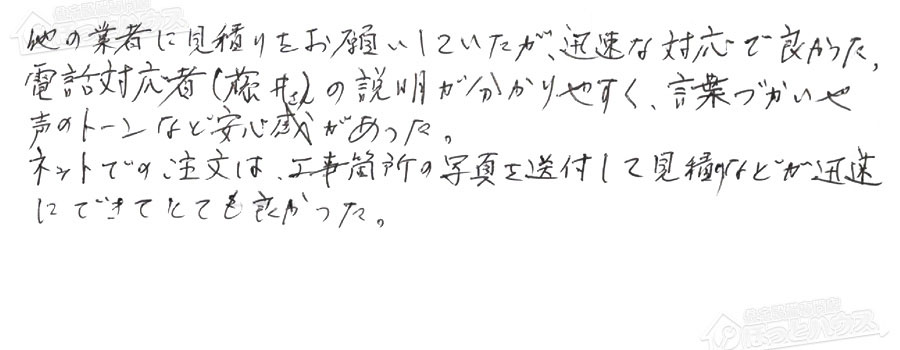 他の業者に見積りをお願いしていたが、迅速な対応で良かった，
電話対応者(藤井さん)の説明が分かりやすく、言葉づかいや
声のトーンなど安心感があった。
ネットでの注文は、工事箇所の写真を送付して見積りなどが迅速
にできてとても良かった。
ほっとハウス